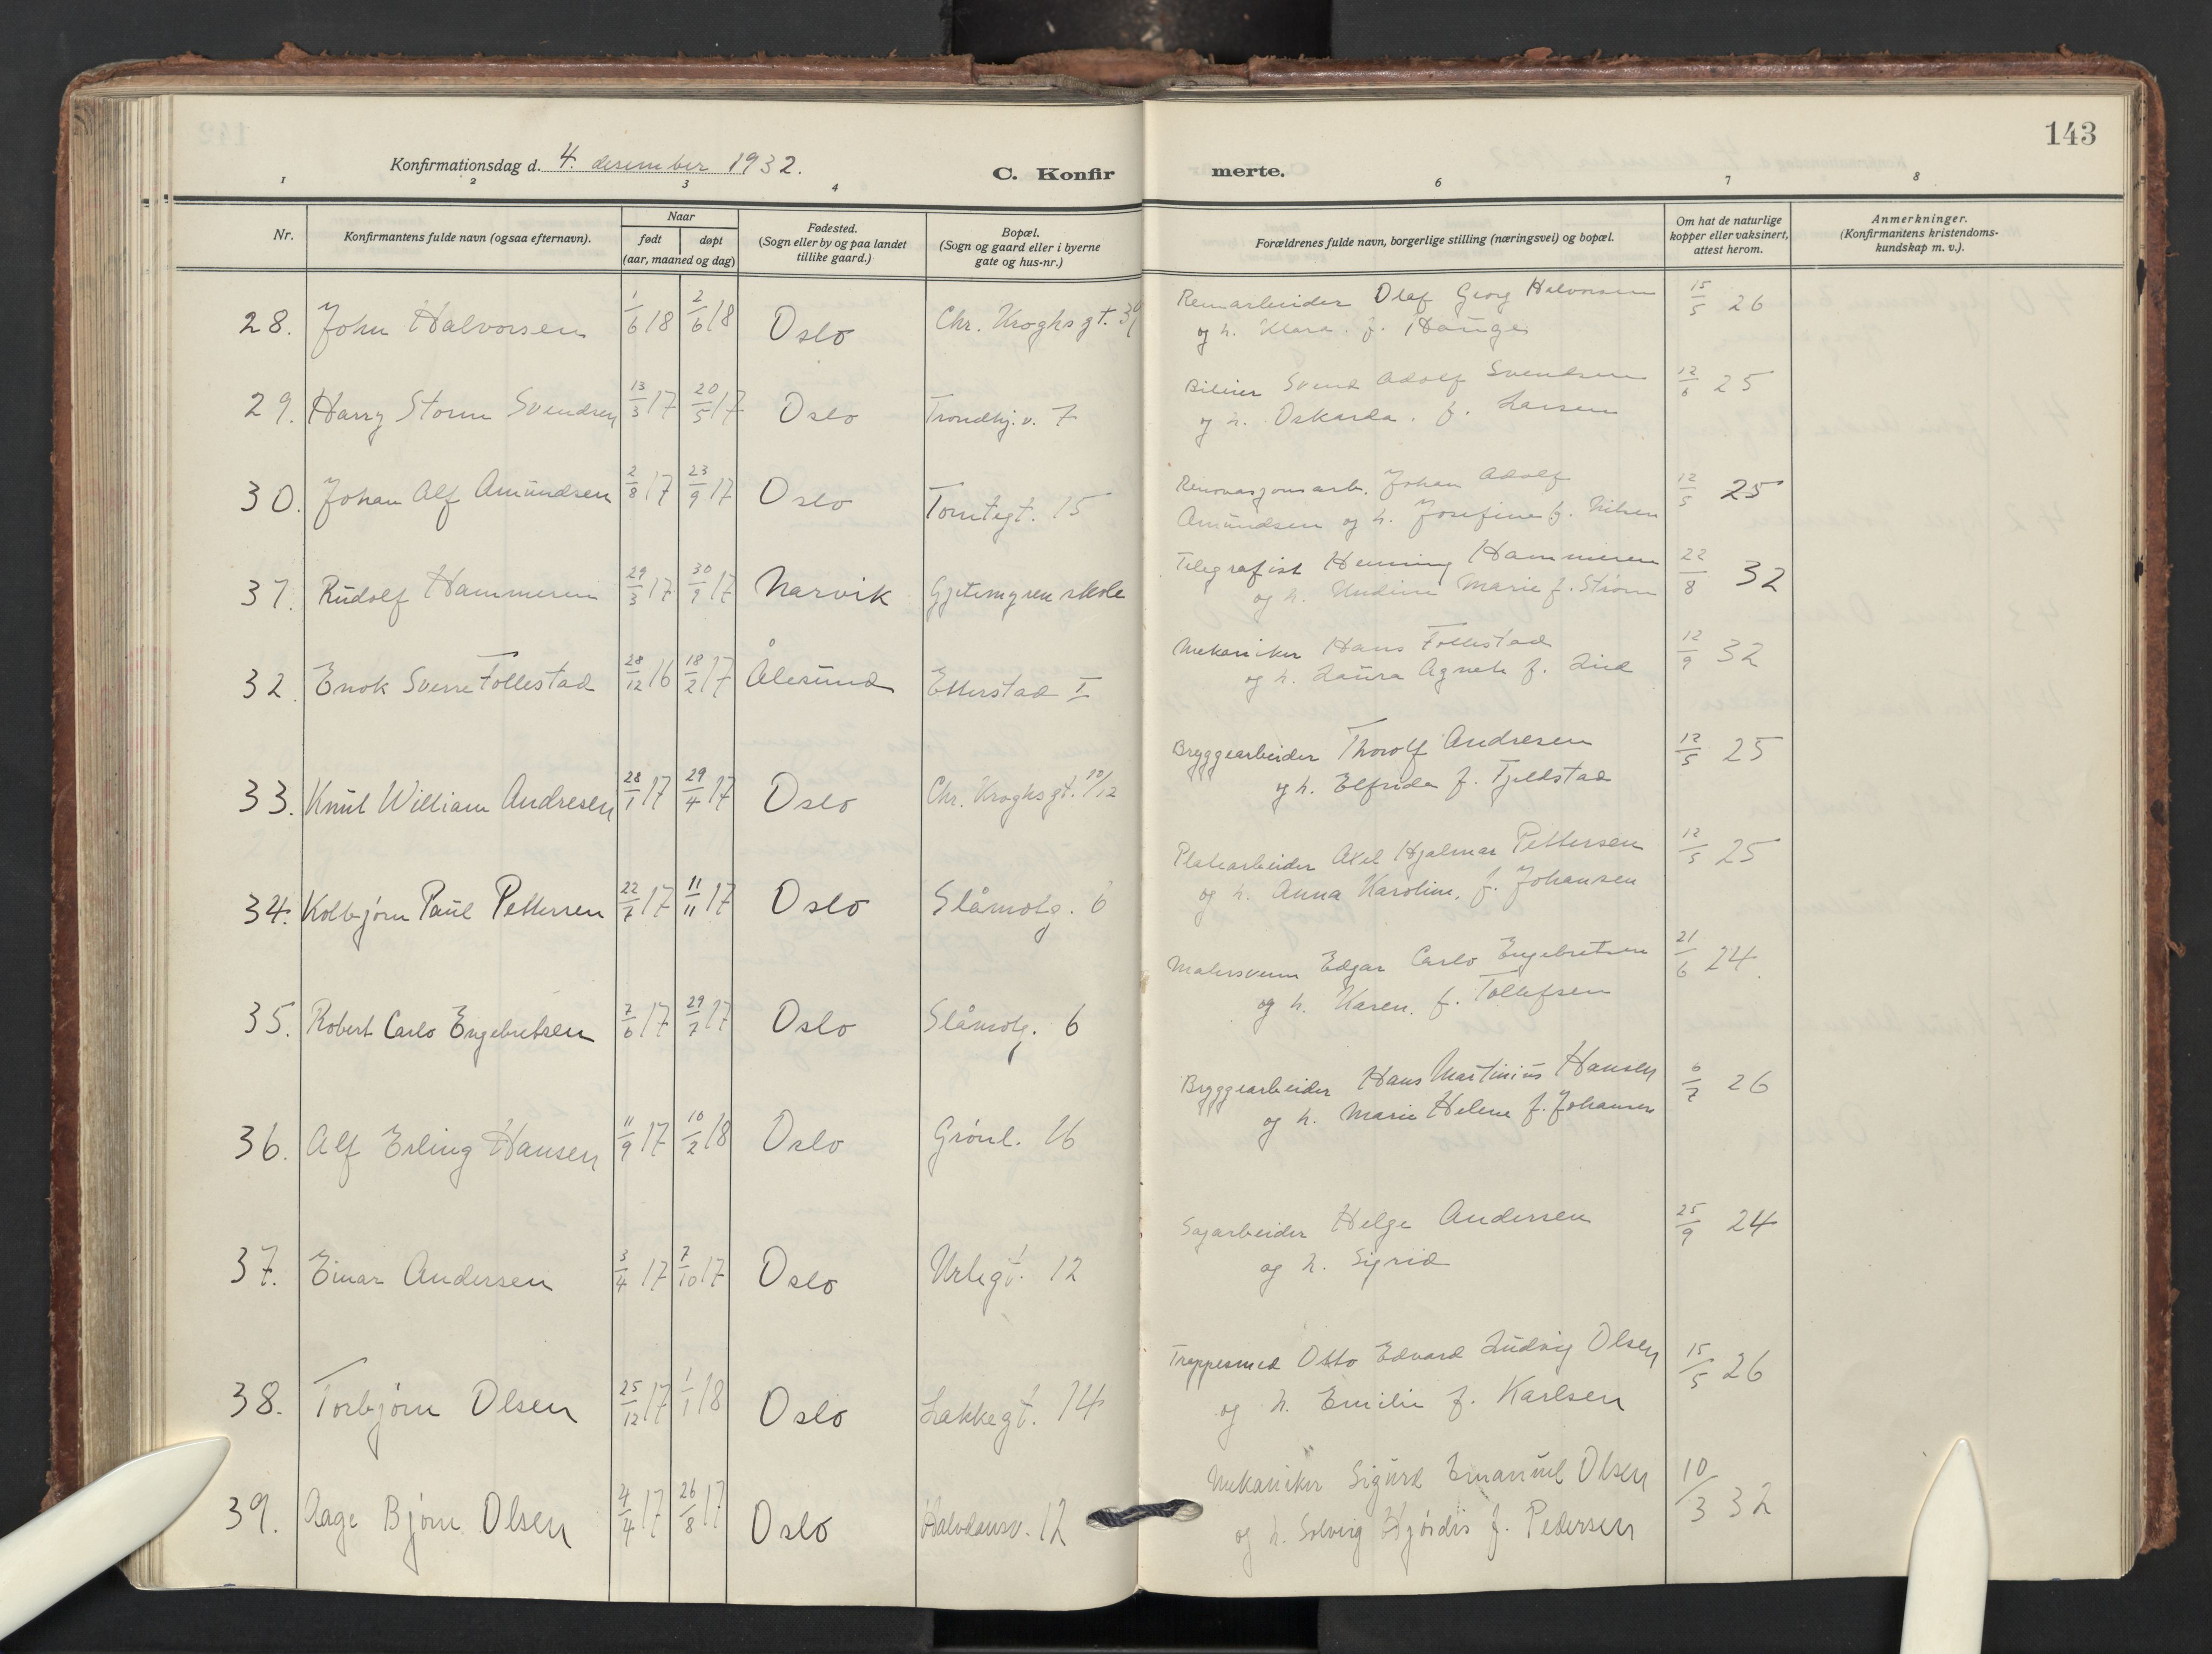 143
Konfirmationsdag d. 4. desember 1932.
C. Konfir merte.
1 2 3 4 6 7 8
Nr.
Konfirmantens fulde navn (ogsaa efternavn).
Naar
født døpt
(aar, maaned og dag)
Fødested.
(Sogn eller by og paa landet
tillike gaard.)
Bopæl.
(Sogn og gaard eller i byerne
gate og hus-nr.)
Forældrenes fulde navn, borgerlige stilling (næringsvei) og bopæl.
Om hat de naturlige
kopper eller vaksinert,
attest herom.
Anmerkninger.
(Konfirmantens kristendoms-
kundskap m. v.).
28. John Halvorsen 1/6 18 2/6 18 Oslo Chr. Kroghsgt.
Olaf Georg Halvorsen 15/5 26
og h. Klara. f. Hauge
29. Harry Storm Svendsen 13/3 17 20/5 17 Oslo Trondhj.v. 7
Bileier Svend Adolf Svendsen 12/6 25
og h. Oskarda. f. Larsen
30. Johan Alf Amundsen 2/8 17 23/9 17 Oslo Tomtegt. 15
Renovasjonsarb. Johan Adolf 12/5 25
Amundsen og h. Josefine f. Nilsen
31. Rudolf Hammeren 29/3 17 30/9 17 Narvik Gjetemyren skole
Telegrafist Henning Hammeren 22/8 32
og h. Undine Marie f. Strøm
32. Enok Sverre Follestad 28/12 16 18/2 17 Ålesund Etterstad I
Mekaniker Hans Follestad 12/9 32
og h. Laura Agnete f. Lid
33. Knut William Andresen 28/1 17 29/4 17 Oslo Chr. Kroghsgt. 10/12
Bryggearbeider Thorolf Andresen 12/5 25
og h. Elfrida f. Tjeldstad
34. Kolbjørn Paul Pettersen 22/7 17 11/11 17 Oslo Slåmotg. 6
Platearbeider Axel Hjalmar Pettersen 12/5 25
og h. Anna Karoline, f. Johansen
35. Robert Carlo Engebretsen 7/6 17 29/7 17 Oslo Slåmotg. 6
Malersvenn Edgar Carlo Engebretsen 21/6 24.
og h. Karen. f. Tollefsen
36. Alf Erling Hansen 11/9 17 10/2 18 Oslo Grønl. 26
Bryggearbeider Hans Martinius Hansen 6/7 26
og h. Marie Helene f. Johansen
37. Einar Andersen 3/4 17 7/10 17 Oslo Urtegt. 12
Sagarbeider Helge Andersen 25/9 24
og h. Sigrid
38. Torbjørn Olsen 25/12 17 1/1 18 Oslo Lakkegt. 14
Trappesmed Otto Edvard Ludvig Olsen 15/5 26
og h. Emilie f. Karlsen
39. Aage Bjørn Olsen 4/4 17 26/8 17 Oslo Halvdansv. 12
Mekaniker Sigurd Emanuel Olsen 10/3 32
og h. Solveig Hjørdis f. Pedersen